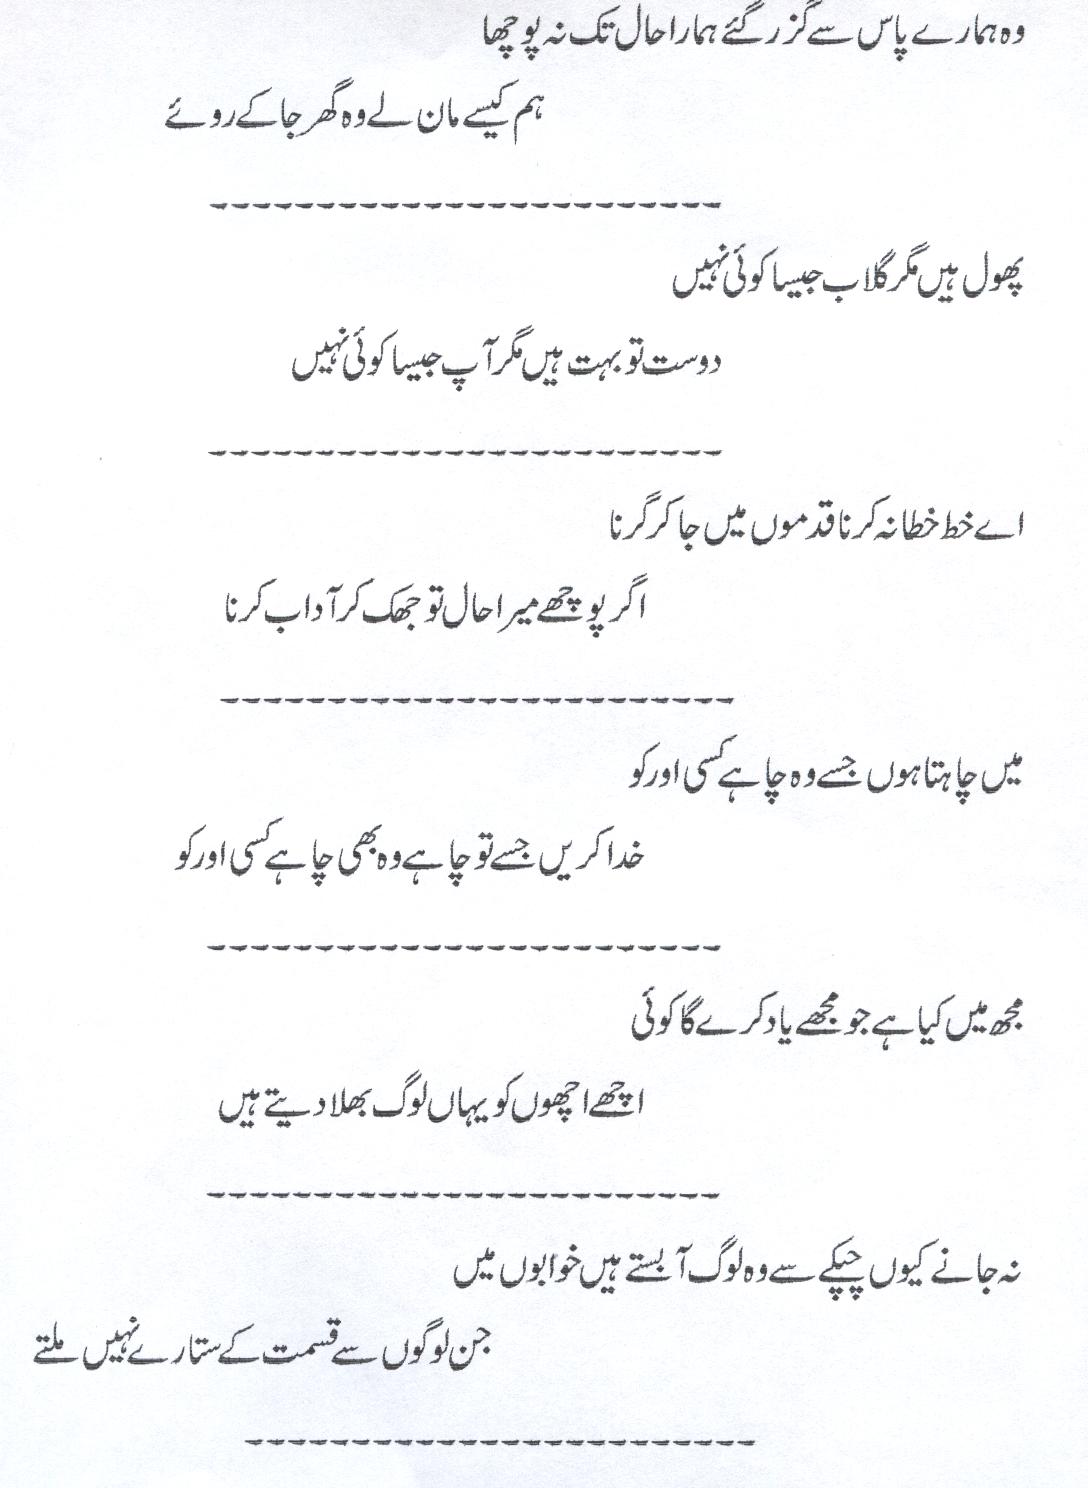 وہ ہمارے پاس سے گزر گئے ہمارا حال تک نہ پوچھا
ہم کیسے مان لے وہ گھر جا کے روئے
------------------------
پھول ہیں مگر گلاب جیسا کوئی نہیں
دوست تو بہت ہیں مگر آپ جیسا کوئی نہیں
------------------------
اے خط خطا نہ کرنا قدموں میں جا کر گرنا
اگر پوچھے میرا حال تو جھک کر آداب کرنا
------------------------
میں چاہتا ہوں جسے وہ چاہے کسی اور کو
خدا کریں جسے تو چاہے وہ بھی چاہے کسی اور کو
------------------------
مجھ میں کیا ہے جو مجھے یاد کرے گا کوئی
اچھے اچھوں کو یہاں لوگ بھلا دیتے ہیں
------------------------
نہ جانے کیوں چپکے سے وہ لوگ آ بستے ہیں خوابوں میں
جن لوگوں سے قسمت کے ستارے نہیں ملتے
------------------------